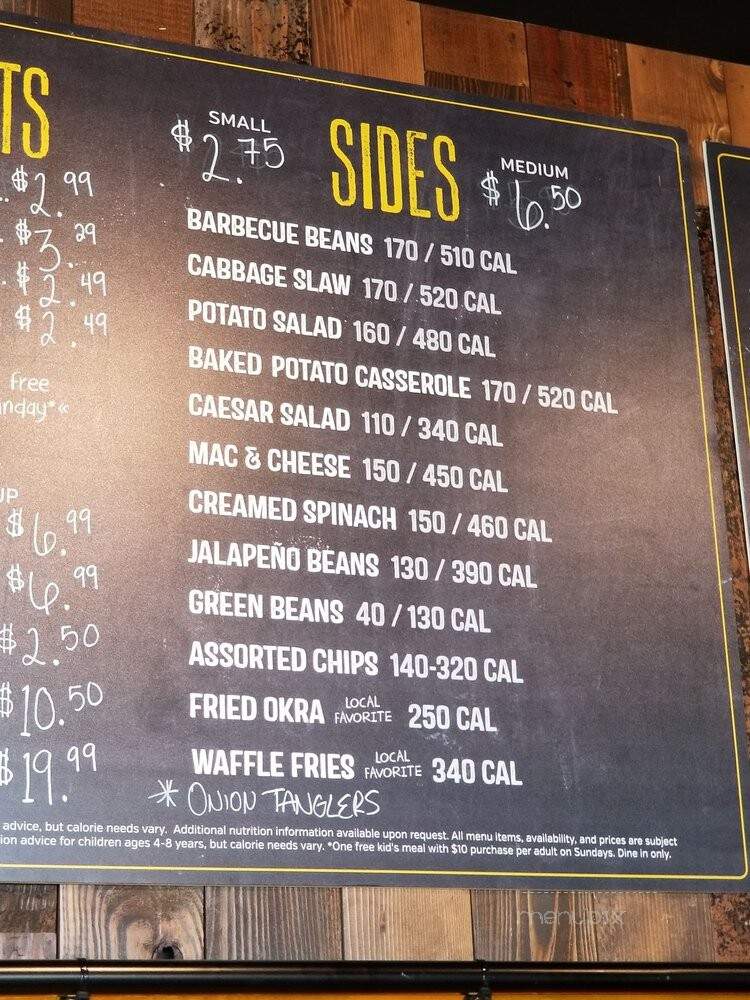 TS
$2.99
$3.29
$2.49
$2.49
free
nday*«
UP
$6.99
$6.99
$2.50
$10.50
$19.99
SMALL
$2.75
SIDES
MEDIUM
$6.50
BARBECUE BEANS 170 / 510 CAL
CABBAGE SLAW 170 / 520 CAL
POTATO SALAD 160 / 480 CAL
BAKED POTATO CASSEROLE 170 / 520 CAL
CAESAR SALAD 110 / 340 CAL
MAC & CHEESE 150 / 450 CAL
CREAMED SPINACH 150 / 460 CAL
JALAPEÑO BEANS 130 / 390 CAL
GREEN BEANS 40 / 130 CAL
ASSORTED CHIPS 140-320 CAL
FRIED OKRA LOCAL FAVORITE 250 CAL
WAFFLE FRIES LOCAL FAVORITE 340 CAL
* ONION TANGLERS
advice, but calorie needs vary. Additional nutrition information available upon request. All menu items, availability, and prices are subject
ion advice for children ages 4-8 years, but calorie needs vary. *One free kid's meal with $10 purchase per adult on Sundays. Dine in only.
menupix